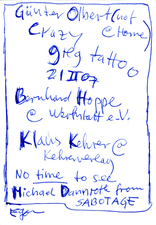 Günter Olbert (not
Crazy @ Home)
greg tattoo
21 II 07
Bernhard Hoppe
@ Werkstatt e.V.
Klaus Kehrer @
Kehrerverlag
NO time to see
Michael Dannroth from
SABOTAGE